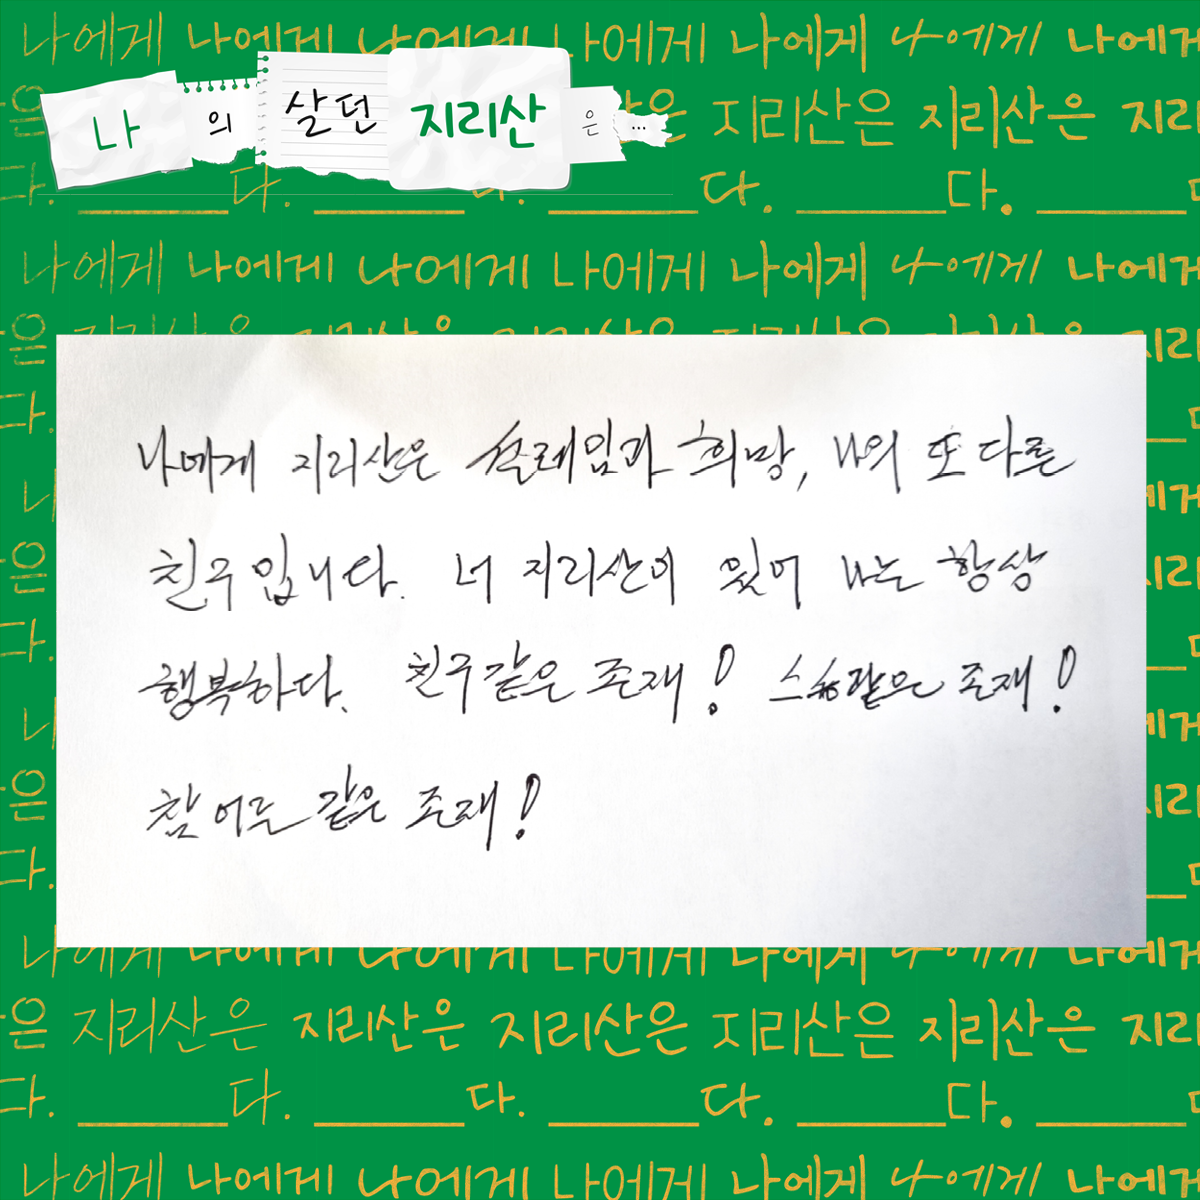 나에게 나에게 나에게 나에게 나에게 나에게 나에게
나의 살던 지리산은...
은 지리산은 지리산은 지리
다. 다. 다. 다. 다.
나에게 나에게 나에게 나에게 나에게 나에게 나에게
나에게 지리산은 설레임과 희망, 나의 또 다른
친구입니다. 너 지리산이 있어 나는 항상
행복하다. 친구같은 존재! 스승같은 존재!
참 어른 같은 존재!
나에게 나에게 나에게 나에게 나에게 나에게 나에게
은 지리산은 지리산은 지리산은 지리산은 지리산은 지리
다. 다. 다. 다. 다.
나에게 나에게 나에게 나에게 나에게 나에게 나에게